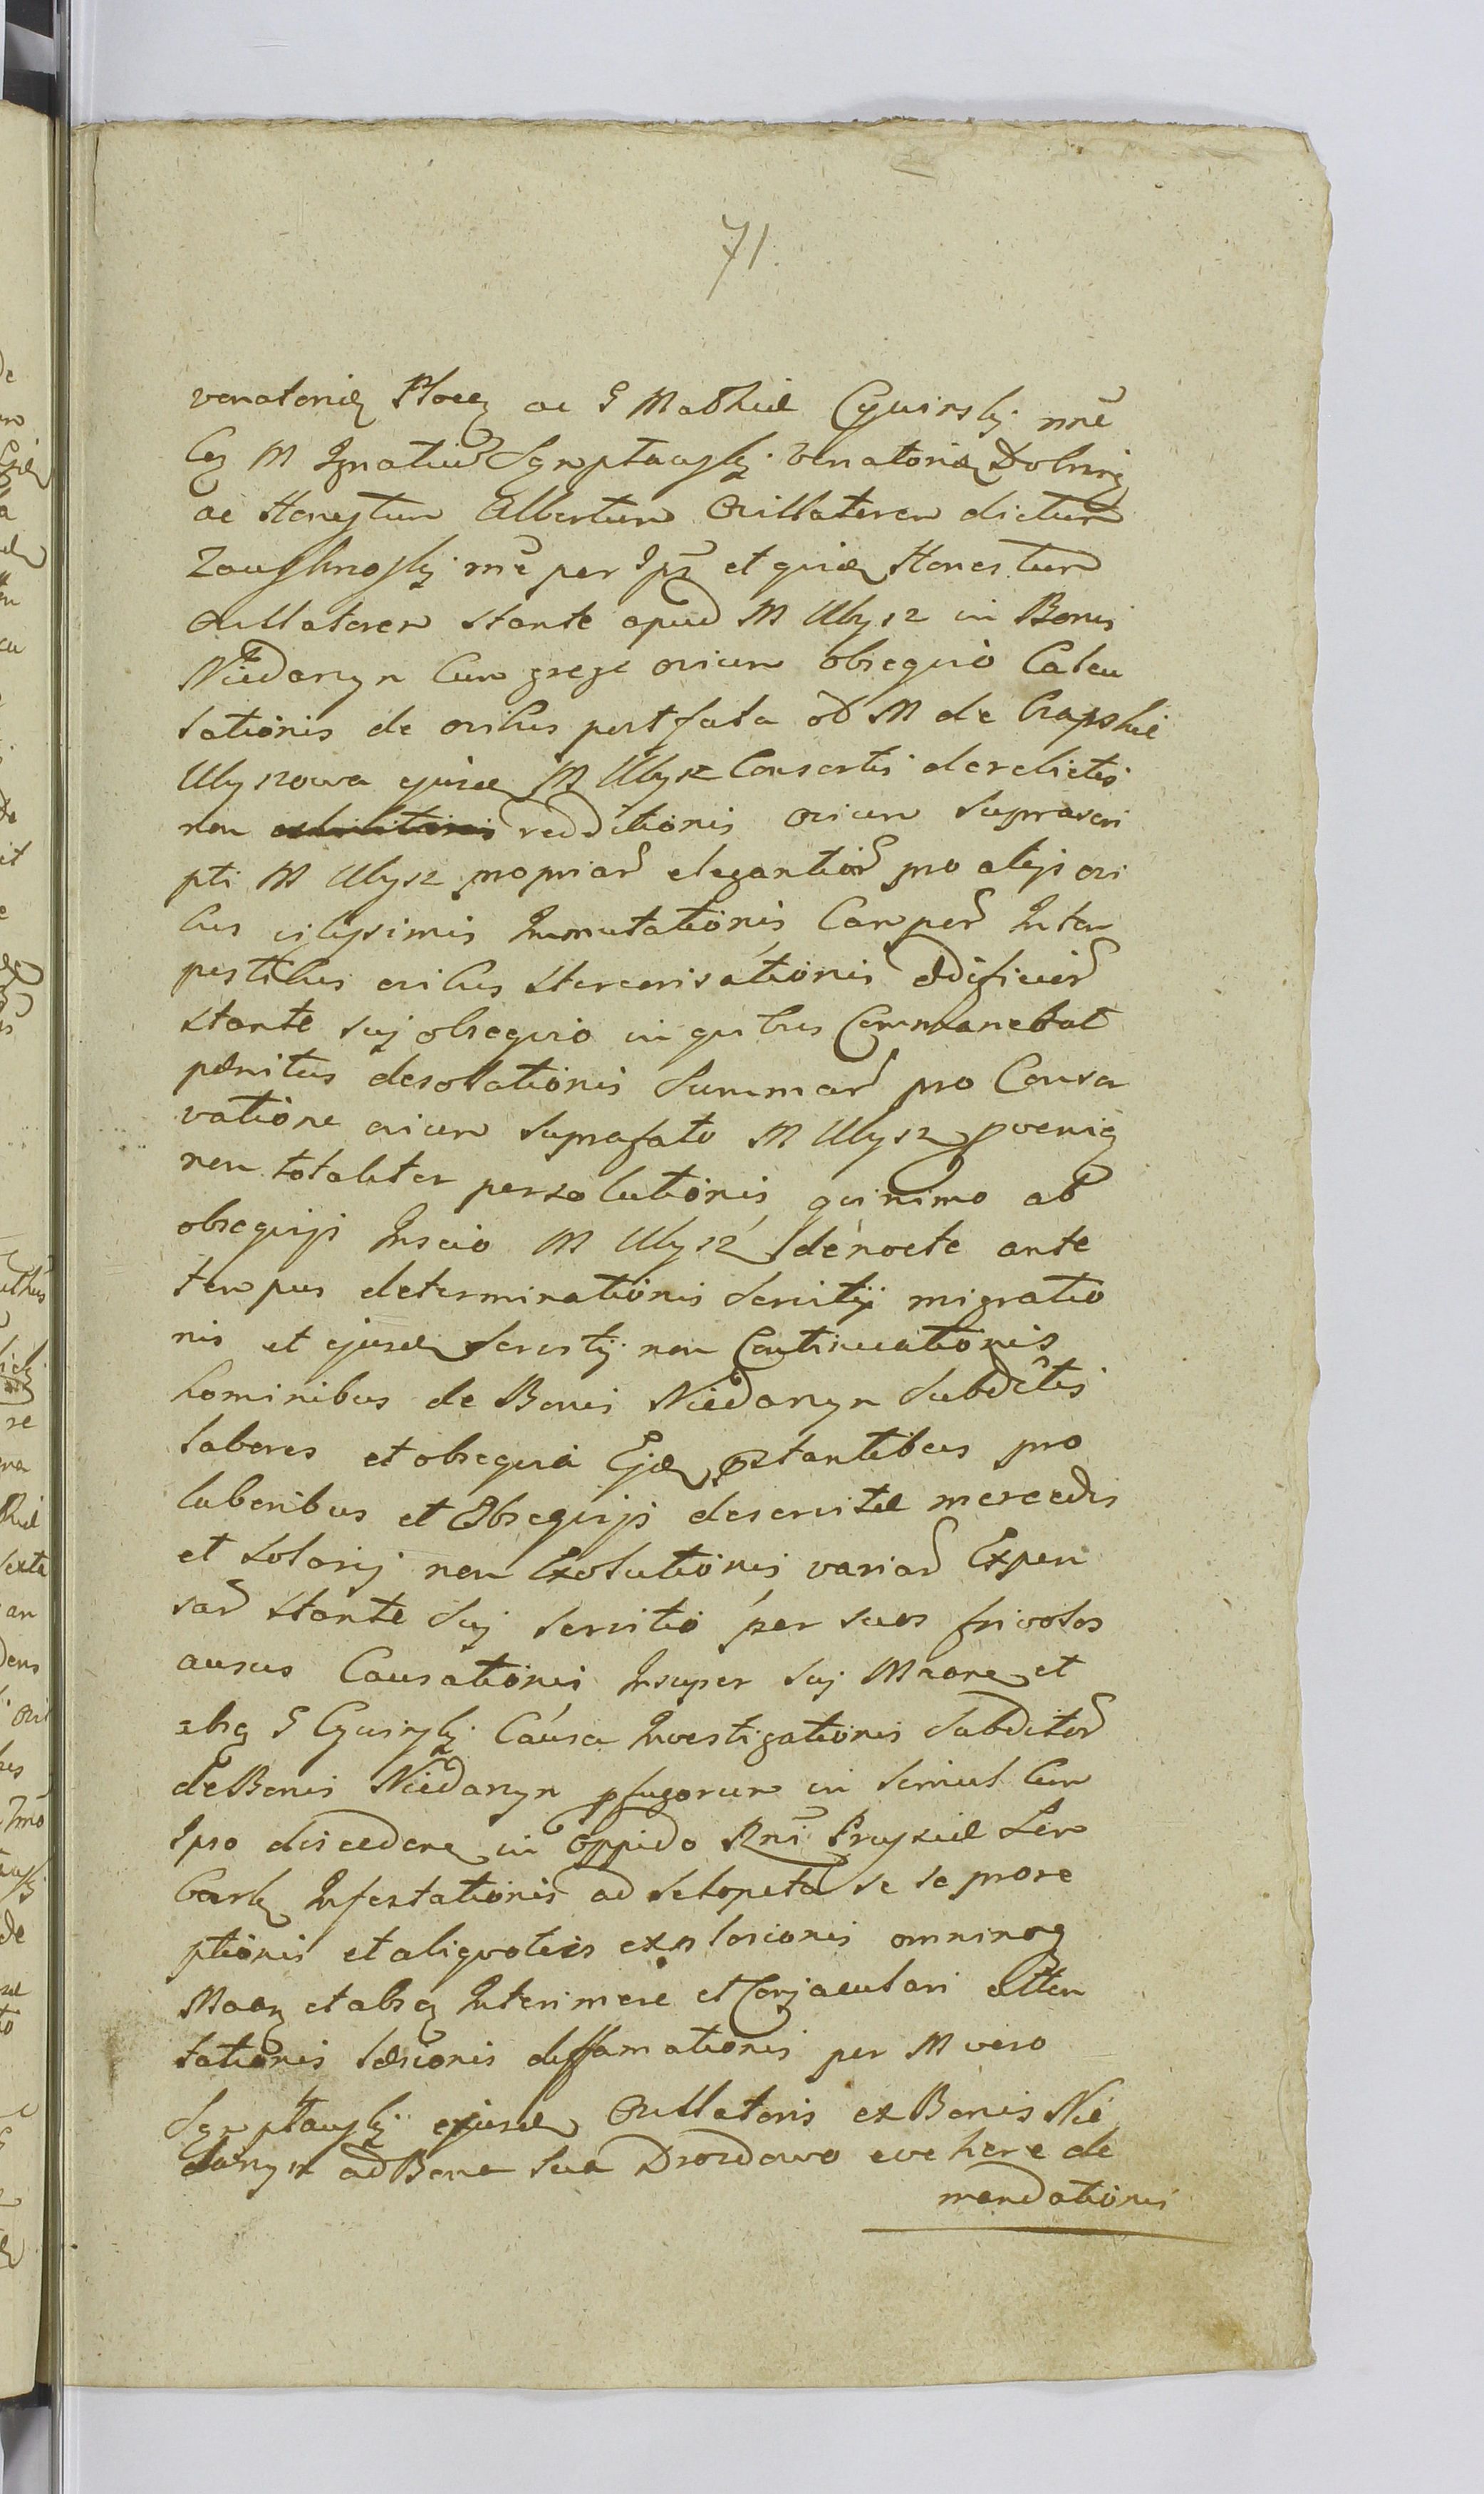 71.
venatoriæ Ploceñ ac G Mathiæ Cywinskj nne
Cq M Ignatiū Sęmpławskj Venatoriæ Dobrinq
ac Honestum Albertum Ovillatorem dictum
Zawslinoskj me per Ips et quidē Honestum
Ovillatorem stante apud M Ulysz in Bonis
Niedarzyn Cum grege ovium obsequio Calcu
lationis de ovibus post fata ōd M de Czapskie
Ulyszowa ejusd M Ulysz Consortis derelictis
non redditionis ovium suprascri
pti M Ulysz propriar elegantior pro alijs ovi
bus vilissimis Immutationis Camper Intem
pestibus ovibus stercorisationis ædificior
stante suj obsequio in quibus Commanebat
pænitus desolationis Summar pro Conser
vatione ovium suprafato M Ulysz pvenig
non totaliter persolutionis quinimo ab
obsequijs Inscio M Ulysz de nocte ante
tempus determinationis Servitij migratio
nis et ejusd Servitij non Continuationis
hominibus de Bonis Niedarzyn Subditis
labores et obsequia Ejd pstantibus pro
laboribus et Obsequijs deservitæ mercedis
et solarij non Exolutionis variar Expen
sar stante Suj servitio per suos frivolos
ausus Causationis Insuper Suj Maone et
absq G Cywinskj Causa Investigationis Subditor
de Bonis Niedarzyn pfugorum in simul Cum
Ipso discedere in Oppido Rni Prussiæ Lem
bark Infestationis ad sclopeta se se prore
ptionis et aliquoties explosionis omninoq
Maoq et absq Interimere et Conjaculari atten
tationis læsionis diffamationis per M vero
Sęmpławskj ejusd Ovillatoris ex Bonis Nie
darzyn ad Bona sua Drozdowo evehere de
mandationis